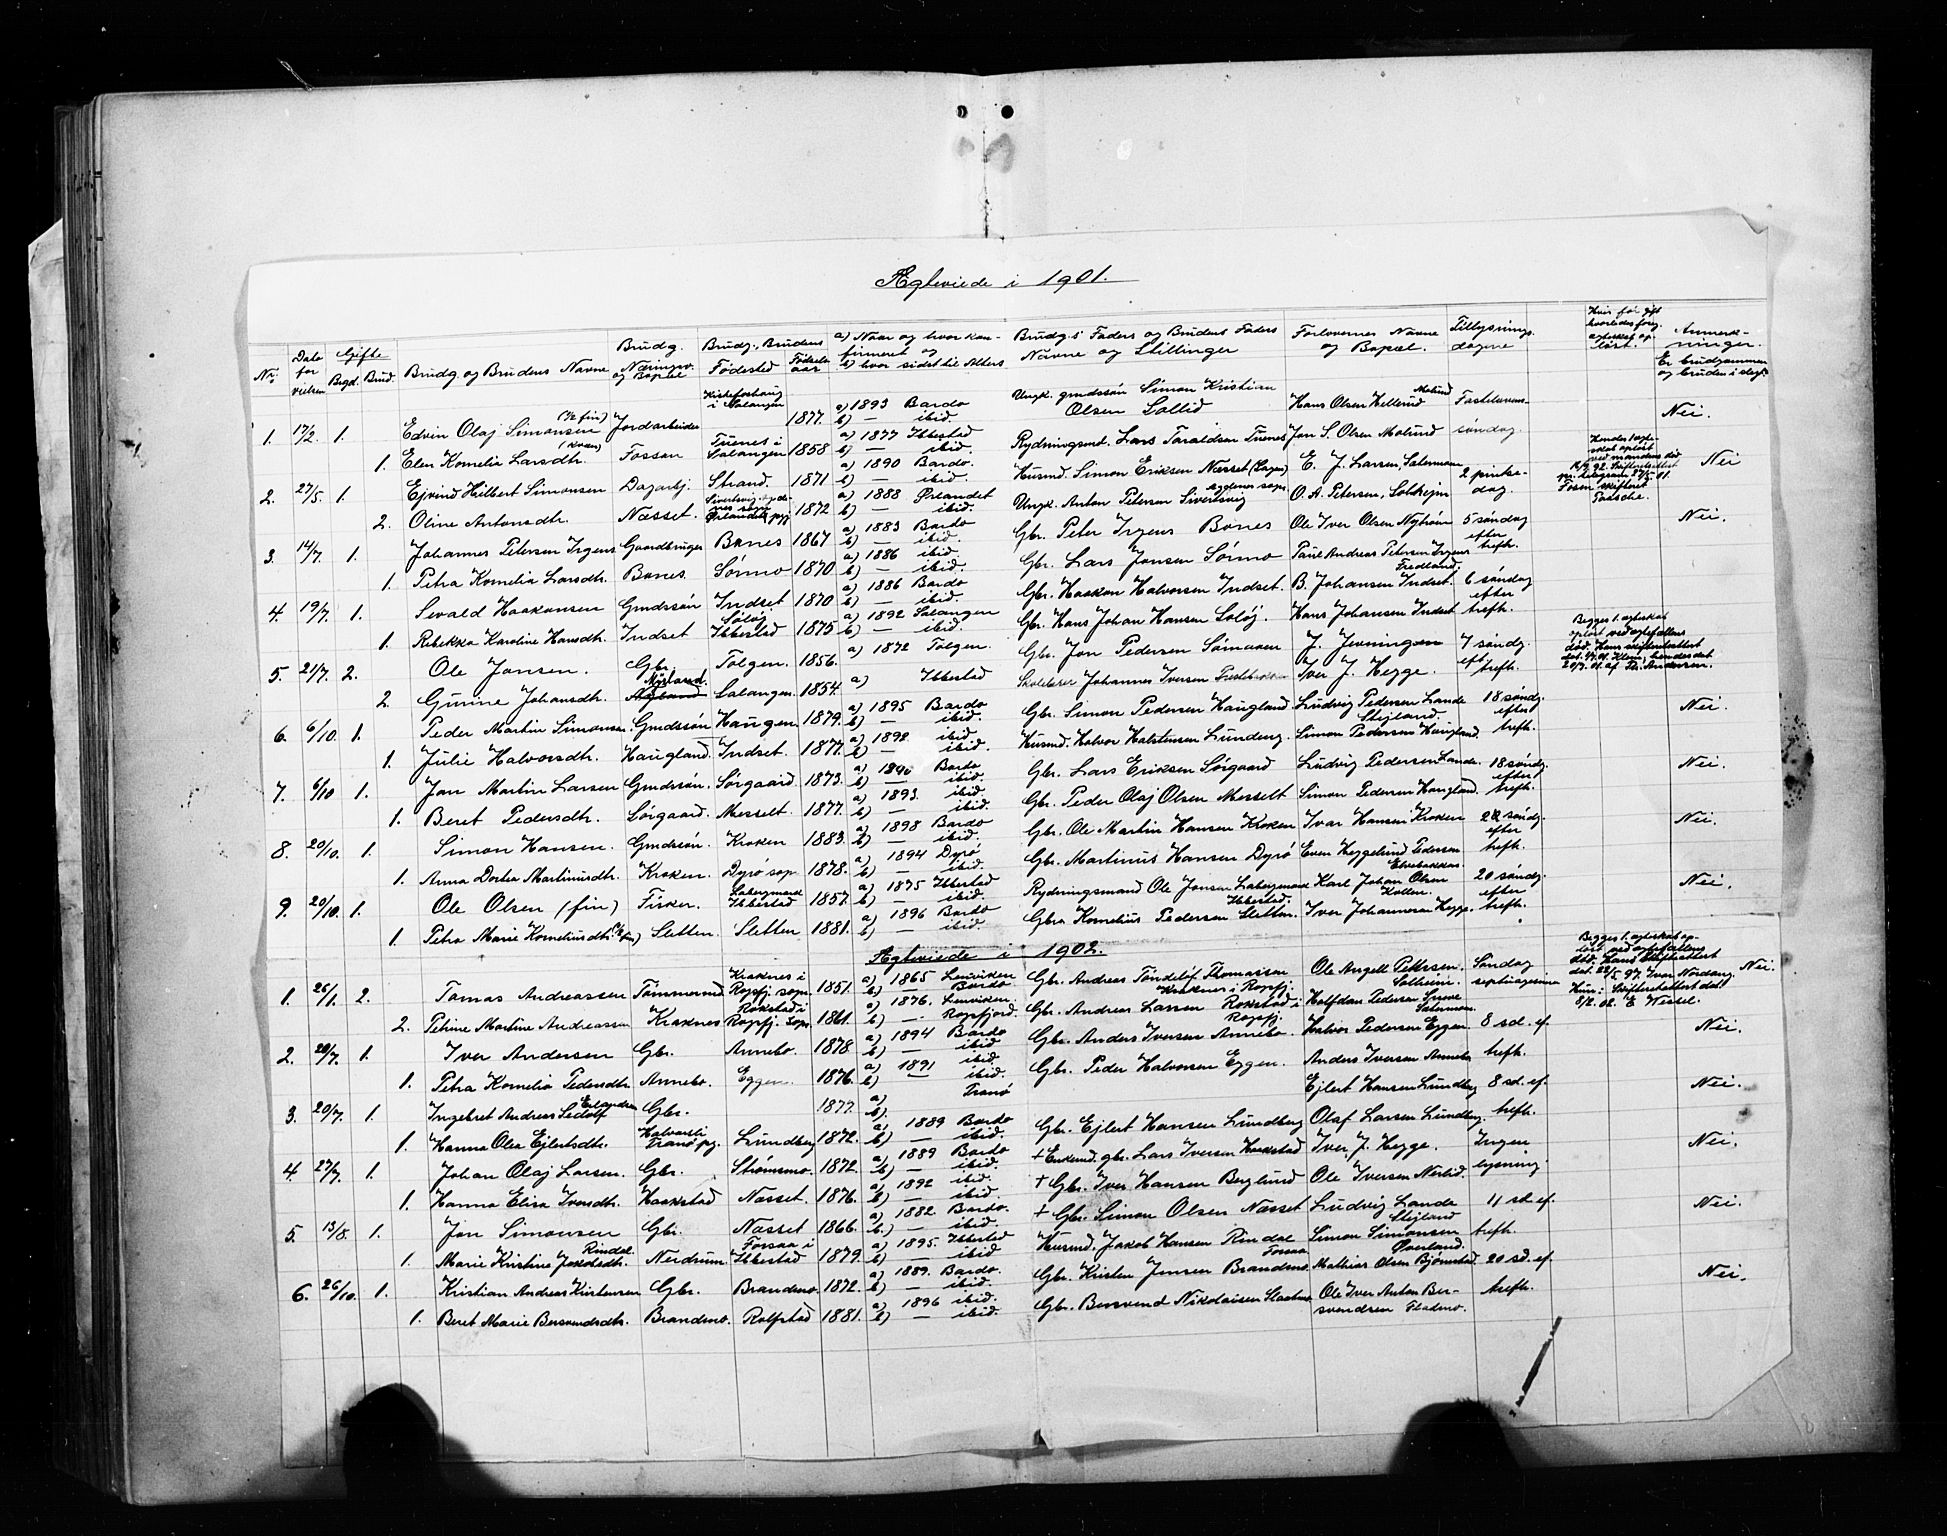 Ægteviede i 1901.
No. Dato for vielsen Gifte Brgd. Brud. Brudg. og Brudens Navne Brudg. Næringsv. og Bopæl Brudg., Brudens Fødested Fødselsaar a) Naar og hvor konfirmeret og b) hvor sidst til Alters Brudg.s Faders og Brudens Faders Navne og Stillinger Forlovernes Navne og Bopæl. Tillysnings dagene Hvis før gift hvorledes forrig ægteskab opløst. Anmerkninger. Er brudgommen og bruden i slegt?
1. 17/2. 1. Edvin Olaj Simonsen (1/2 fin) Jordarbeider i Salangen 1877. a) 1893 Bardo b) — ibid. Ungk. gmdssøn Simon Kristian Olsen Sollid Hans Olsen Hellerud Moland Fastelavns- Nei.
1. Elen Kornelia Larsdtr. (kvæn) Fossan Tuenes i Salangen 1858 a) 1877 Ibbestad b) — ibid. Rydningsmd. Lars Taraldsen Tuenes Jon S. Olsen Molund søndag
2. 27/5. 1. Ejvind Hilbert Simonsen Dagarbj. Strand. 1871 a) 1890 Bardo. b) — ibid. Husmd. Simon Eriksen Næsset E. J. Larsen, Sætermoen 2 pinsedag. Nei
2. Oline Antonsdtr. Næsset. Ørlandets pgj 1872 a) 1888 Ørlandet b) — ibid. Ungk. Anton Petersen Sivertsvig O. A. Petersen, Solhejm
3. 14/7. 1. Johannes Petersen Irgens Gaardbruger Bones 1867 a) 1883 Bardo b) — ibid. Gbr. Peter Irgens Bones Ole Iver Olsen Nytrøen 5 søndag efter trefh. Nei.
1. Petra Kornelia Larsdtr. Bones. Sørmo 1870 a) 1886 ibid. b) — ibid. Gbr. Lars Jonsen Sørmo Paul Andreas Petersen Irgens Fredlund
4. 19/7. 1. Sevald Haakonsen Gmdssøn Indset 1870 a) 1886 Bardo b) — ibid. Gbr. Haakon Halvorsen Indset. B. Johansen Indset. 6 søndag efter trefh.
1. Rebekka Karoline Hansdtr. Indset Soløj Ibbestad 1875 a) 1892 Salangen b) — ibid. Gbr. Hans Johan Hansen Soløj. Hans Johansen Indset
5. 21/7. 2. Ole Jonsen. Gbr. Tolgen. 1856. a) 1872 Tolgen. Gbr. Jon Pedersen Sømoen J. Jenningen 7 søndg. eft trefh. Begges 1. ægteskab opløst ved ægtefællens død.
2. Gurine Johansdtr. Salangen 1854. a) Ibbestad Skolelærer Johannes Iversen Iver J. Hegge.
6. 6/10. 1. Peder Martin Simonsen. Gmdssøn Haugen 1879. a) 1895 Bardo b) — ibid. Gbr. Simon Pedersen Haugland Ludvig Pedersen Lande Stejland. 18 søndg. efter trefh. Nei.
1. Julie Halvorsdtr. Haugland. Indset. 1877. a) 1892. ibid. b) — ibid. Husmd. Halvor Halstensen Lundeng. Simon Pedersen Haugland.
7. 6/10 1. Jon Martin Larsen Gmdssøn. Sørgaard 1873. a) 1890 Bardo b) — ibid. Gbr. Lars Eriksen Sørgaard Ludvig Pedersen Lande. 18 søndg. efter trefh. Nei.
1. Beret Pedersdtr. Sørgaard. Messelt 1877. a) 1893. ibid. b) — ibid. Gbr. Peder Olaj Olsen Messelt Simon Pedersen Haugland
8. 20/10. 1. Simon Hansen. Gmdssøn. Kroken 1883. a) 1898 Bardo b) — ibid. Gbr. Ole Martin Hansen Kroken Ivar Hansen Kroken søndg. efter trefh. Nei.
1. Anna Dortea Martinusdtr. Kroken. Dyrø sogn 1878. a) 1894 Dyrø b) — ibid. Gbr. Martinus Hansen Dyrø Even Heggelund Pedersen Elvebakken
9. 20/10. 1. Ole Olsen (fin) Fisker. Ibbestad 1857. a) 1875 Ibbestad b) — ibid. Rydningsmand Ole Jonsen Ibbestad. Karl Johan Olsen Kollen. 20 søndg. efter trefh. Nei.
1. Petra Marie Korneliusdtr. (1/2 fin) Sletten. Sletten 1881. a) 1896 Bardo b) — ibid. Gbr. Kornelius Pedersen Sletten. Iver Johannesen Hegge.
Ægteviede i 1902.
1. 26/1. 2. Tomas Andreassen Tømmermd. Kraknes i Rossfj. sogn 1851. a) 1865 Lenviken b) Bardo Gbr. Andreas Tøndelöf Thomassen Kraknes i Rossfj. Ole Angell Pettersen. Solheim. Søndag septuagesima Nei.
2. Petrine Martine Andreassen Kraknes Rokstad i Rossfj. Sogn 1861. a) 1876. Lenviken. b) — Rossfjord. Gbr. Andreas Larsen Rokstad i Rossfj. Halfdan Pedersen Sætermoen.
2. 20/7. 1. Iver Andersen Gbr. Annebo. 1878. a) 1894 Bardo b) — ibid. Gbr. Anders Iversen Annebo. Halvor Pedersen Eggen 8 sd. ef. trefh. Nei.
1. Petra Kornelia Pedersdtr. Annebo. Eggen. 1876. a) 1891 ibid. b) — ibid. Gbr. Peder Halvorsen Eggen. Anders Iversen Annebo
3. 20/7. 1. Ingebret Andreas Ledolf Erlandsen Gbr. 1877. a) Tranø b). Ejlert Hansen Lundberg 8 sd. ef. trefh. Nei.
1. Hanna Olea Ejlertsdtr. Tranø pg. Lundberg 1872. a) 1889 Bardo b) — ibid. Gbr. Ejlert Hansen Lundberg Olaf Larsen Lundberg.
4. 27/7. 1. Johan Olaj Larsen. Gbr. Strømsmo. 1872. a) 1889 Bardo b) — ibid. + Enkemd. gbr. Lars Iversen Haakstad Iver J. Hegge. Ingen lysning. Nei.
1. Hanna Elisa Iversdtr. Haakstad Næsset. 1876. a) 1892 ibid. b) — ibid. + Gbr. Iver Hansen Berglund Ole Iversen Nerlid.
5. 13/8. 1. Jon Simonsen Gbr. Næsset 1866. a) 1882 Bardo. b) — ibid. + Gbr. Simon Olsen Næsset Ludvig Lande Stejland 11 sd. ef. trefh. Nei.
1. Marie Kristine Jakobsdtr. Rindal Nerdrum Forsaa i Ibbestad 1879. a) 1895. Ibbestad b) — ibid Husmd. Jakob Hansen Rindal Forsaa Simon Simonsen Øverland.
6. 26/10. 1. Kristian Andreas Kristensen Gbr. Brandmo. 1872. a) 1889. Bardo. b) — ibid. Gbr. Kristen Jensen Brandmo. Mathias Olsen Bjørnstad. 20 sd. ef. trefh. Nei.
1. Beret Marie Bersvendsdtr. Brandmo. Rolfstad 1881. a) 1896 ibid. b) — ibid. Gbr. Bersvend Nikolaisen Slaatmo Ole Iver Anton Bersvendsen Fladmo.